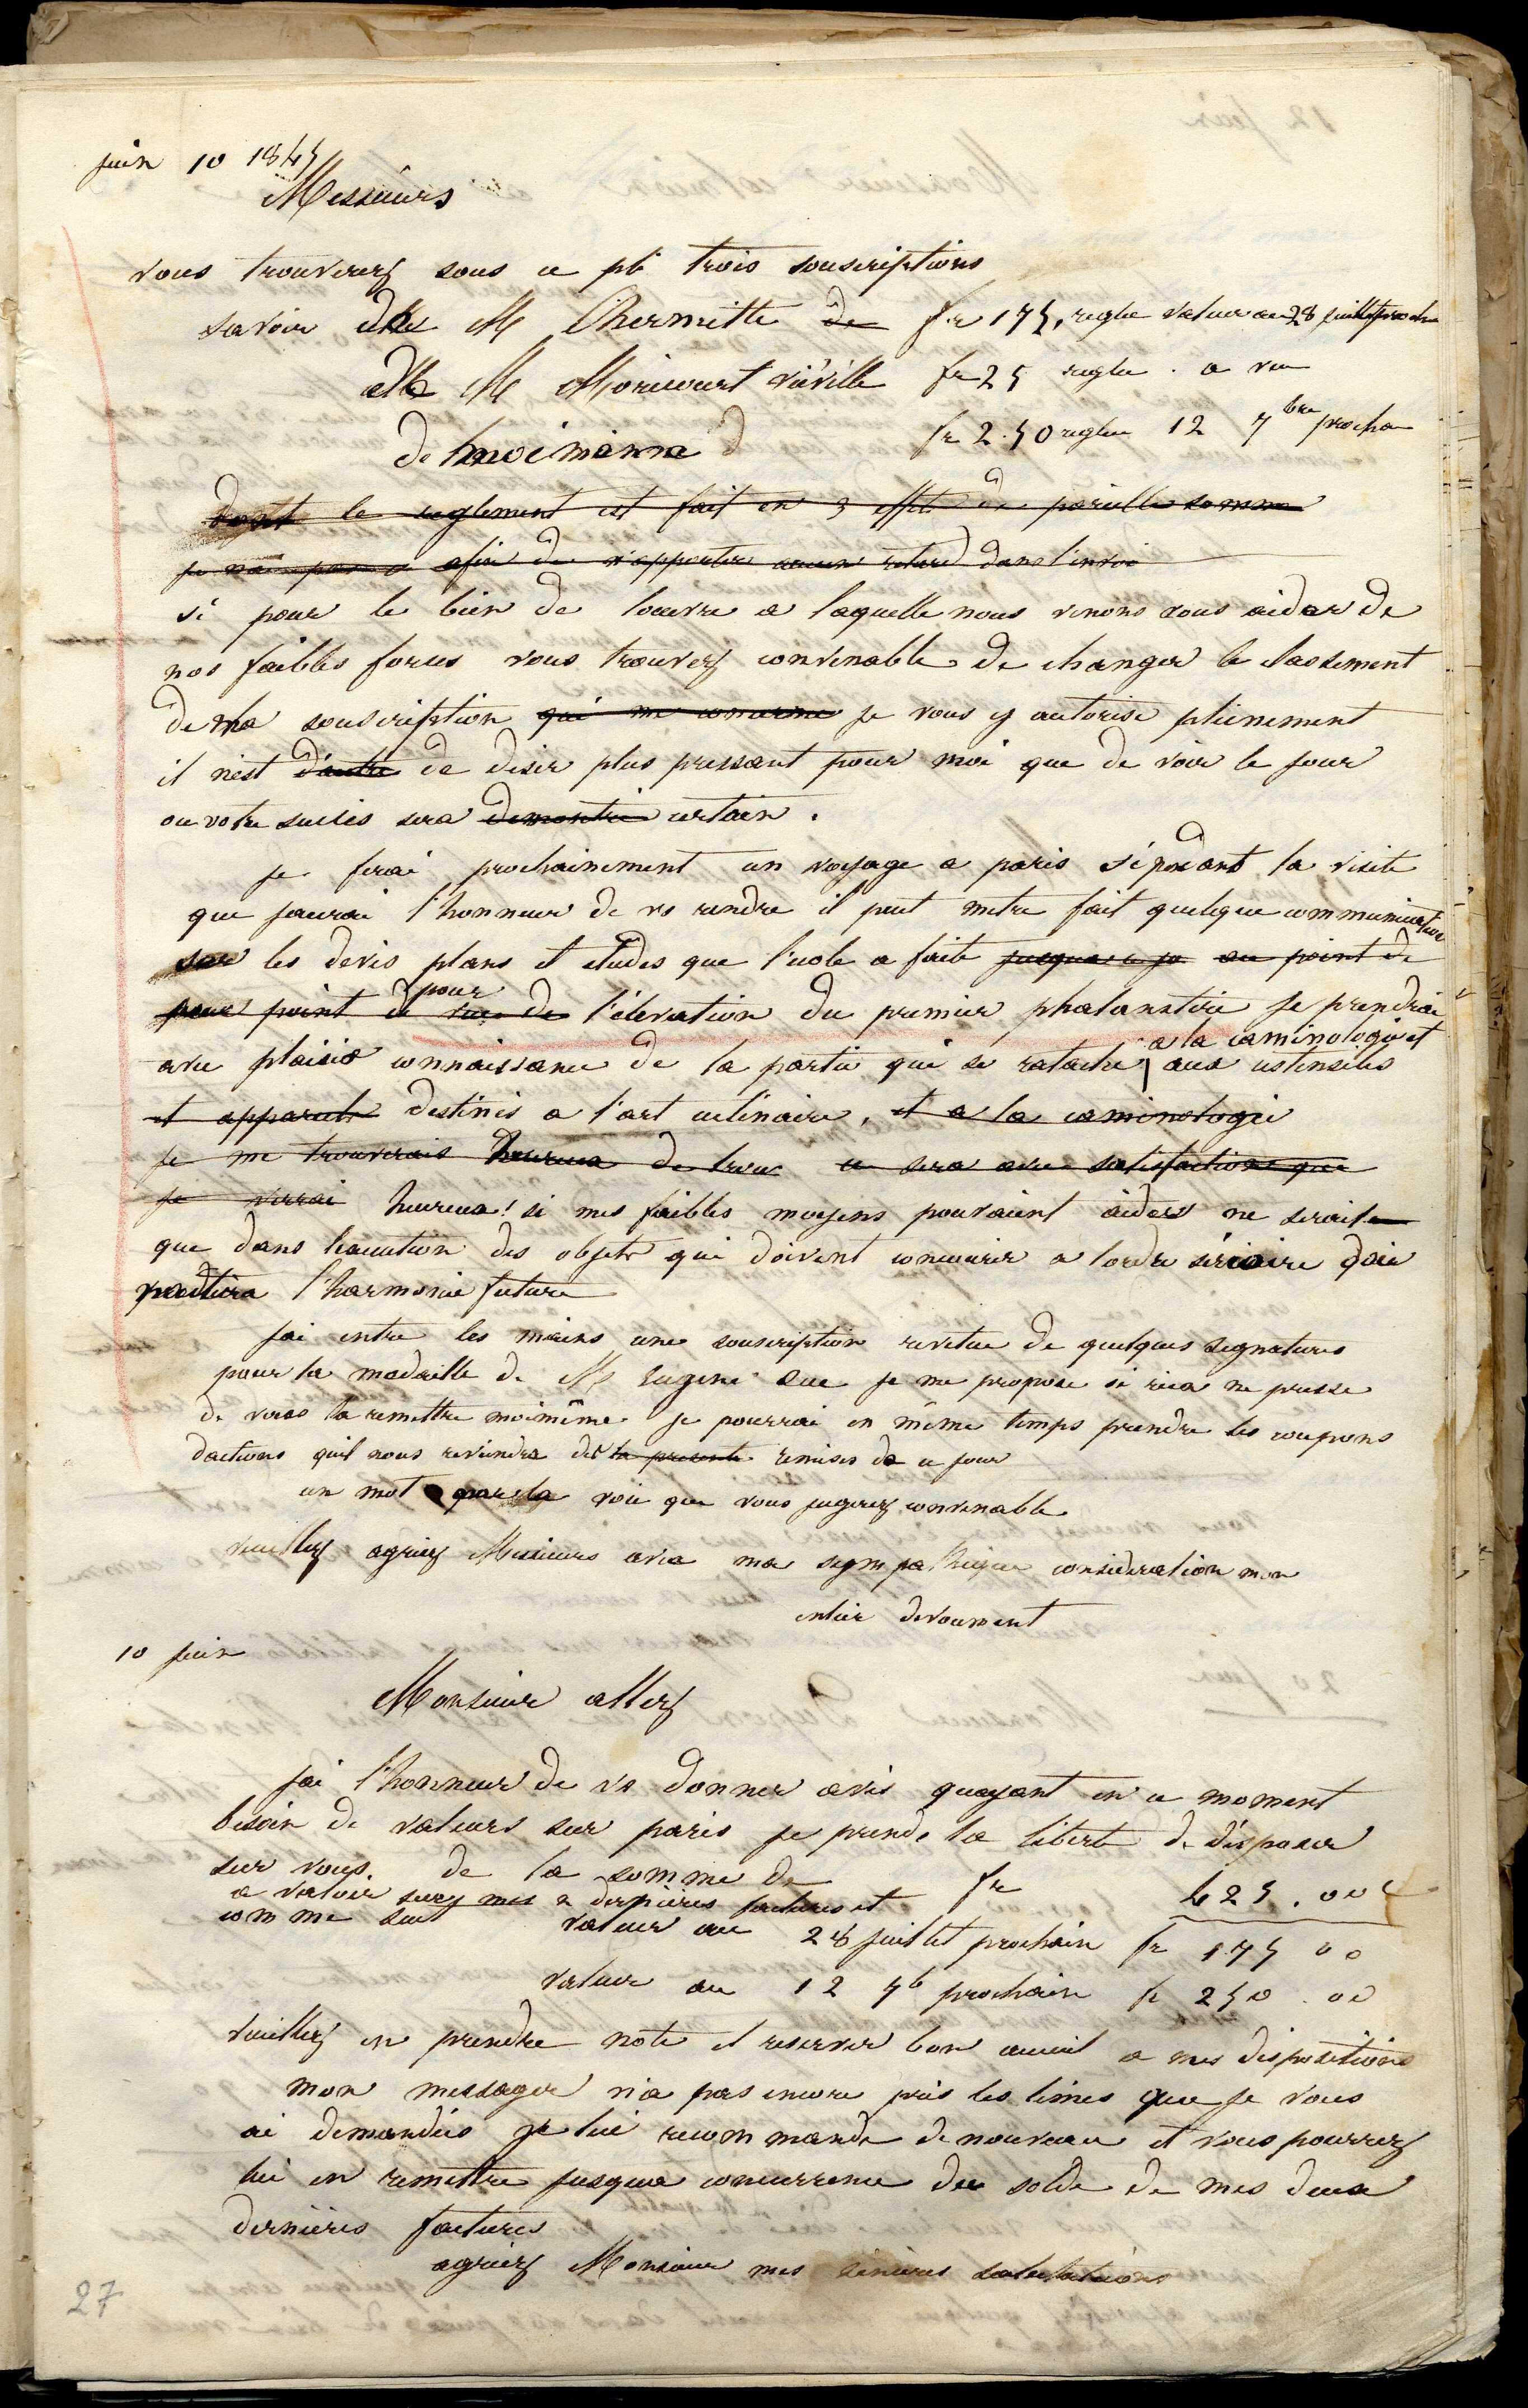 juin 10 1845
Messieurs
vous trouverez sous ce pli trois souscriptions
savoir de M Lhermitte de fr 175, reglee valeur au 28 juillet prochn
de M Moricourt viéville fr 25 reglee . a vue
de moi même fr 2.50 reglee 12 7bre prochn
dont le reglement est fait en 3 effets de pareille somme
afin de n'apporter aucun retard dans l'envoi
si pour le bien de loeuvre a laquelle nous venons vous aider de
nos faibles forces vous trouvez convenable de changer le classement
de ma souscription qui me concerne je vous y autorise pleinement
il nest d'autre de desir plus pressant pour moi que de voir le jour
ou votre succès sera demontré certain .
je ferai prochainement un voyage a paris si pendant la visite
que jaurai l'honneur de vs rendre il peut metre fait quelque communication
sur les devis plans et etudes que l'ecole a faits jusqua ce jo au point de
pour point de vue de pour l'élevation du premier phalanstère je prendrai
avec plaisir connaissance de la partie qui se ratache a la caminologie et aux ustensiles
et appareils destinés a l'art culinaire, et a la caminologie
je me trouverais heureux de trou ce sera avec satisfaction que
je verrai heureux! si mes faibles moyens pouvaient aider ne serait ce
que dans lexecution des objets qui doivent concourir a lordre sériaire doù
l'harmonie future
jai entre les mains une souscription revetue de quelques signatures
pour la medaille de M Eugene Sue je me propose si rien ne presse
de vous la remettre moimême je pourrai en même temps prendre les coupons
dactions quil nous reviendra des la presente remises de ce jour
un mot par la voie que vous jugerez convenable
veuillez agréez Messieurs avec ma sympathique consideration mon
entier devoument
10 juin
Monsieur allez
jai l'honneur de vs donner avis quayant en ce moment
besoin de valeurs sur paris je prends la liberté de disposer
sur vous. de la somme de fr 425.00 c
a valoir sur mes 2 dernieres factures et
comme suit valeur au 28 juillet prochain fr 175 00
valeur au 12 7b prochain fr 250.00
veuillez en prendre note et reserver bon acueil a mes dispositions
mon messager n'a pas encore pris les limes que je vous
ai demandées je lui recommande de nouveau et vous pourrez
lui en remettre jusqua concurrence du solde de mes deux
dernières factures
agréez Monsieur mes sincères salutations
27